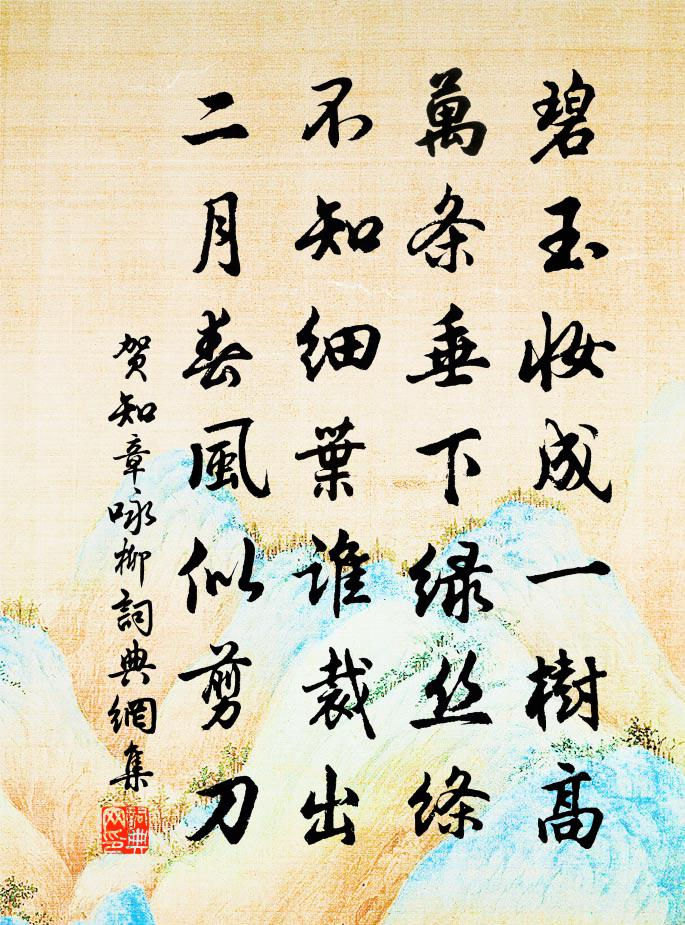 碧玉妆成一樹高
萬条垂下绿丝絛
不知细葉谁裁出
二月春風似剪刀
贺知章咏柳詞典網集
詞典网印